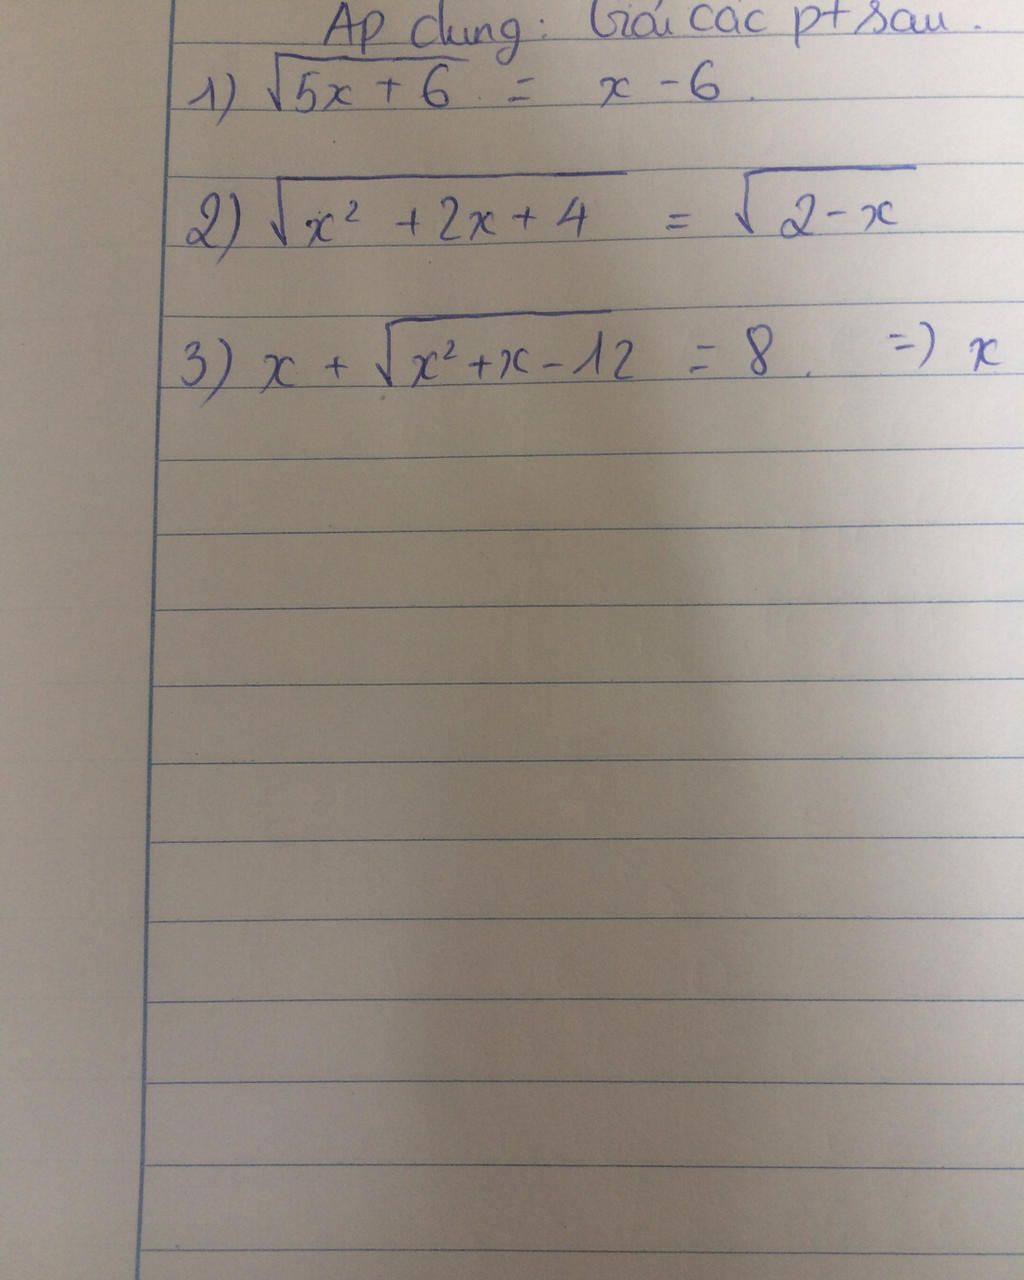 Áp dụng: Giải các pt sau.
1) √(5x + 6) = x - 6.
2) √(x² + 2x + 4) = √(2 - x)
3) x + √(x² + x - 12) = 8. => x